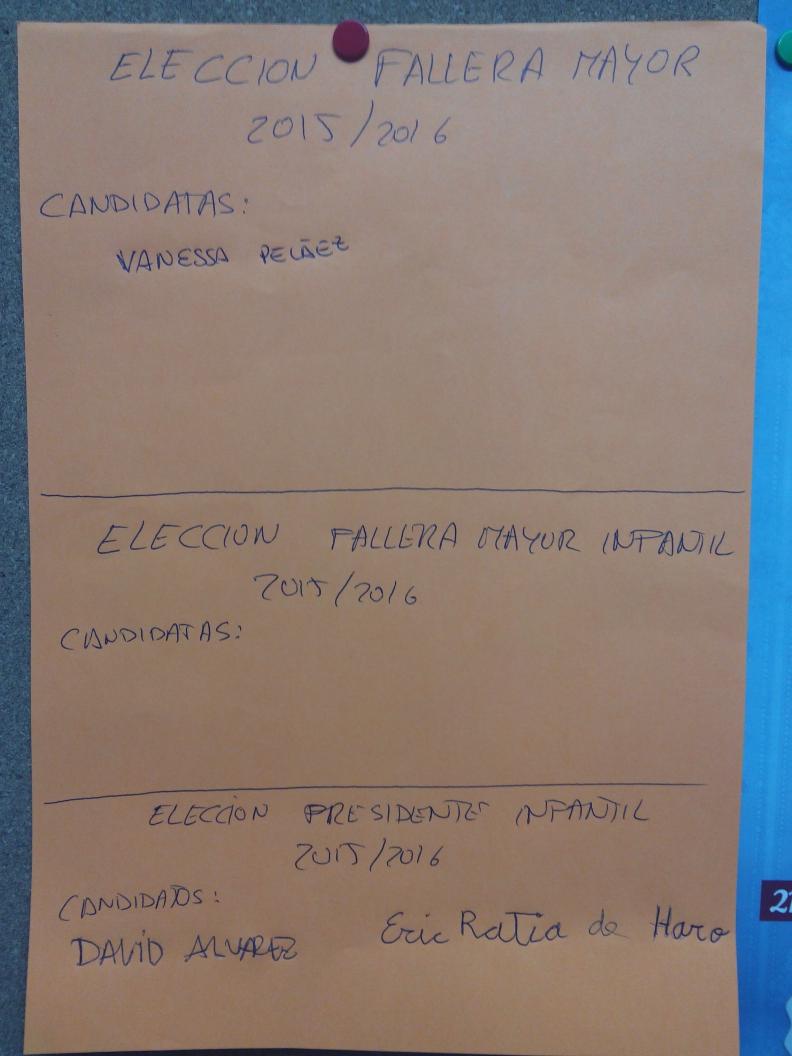 ELECCION FALLERA MAYOR
2015/2016
CANDIDATAS:
VANESSA PELÁEZ
ELECCION FALLERA MAYOR INFANTIL
2015/2016
CANDIDATAS:
ELECCIÓN PRESIDENTE INFANTIL
2015/2016
CANDIDATOS:
DAVID ALVAREZ Eric Ratia de Haro